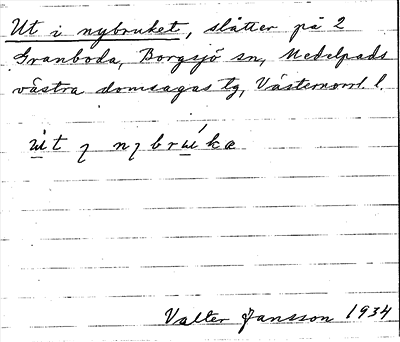 Ut i nybruket, slåtter på 2
Granboda, Borgsjö sn, Medelpads
västra domsagas tg, Västernorrl. l.
Valter Jansson 1934